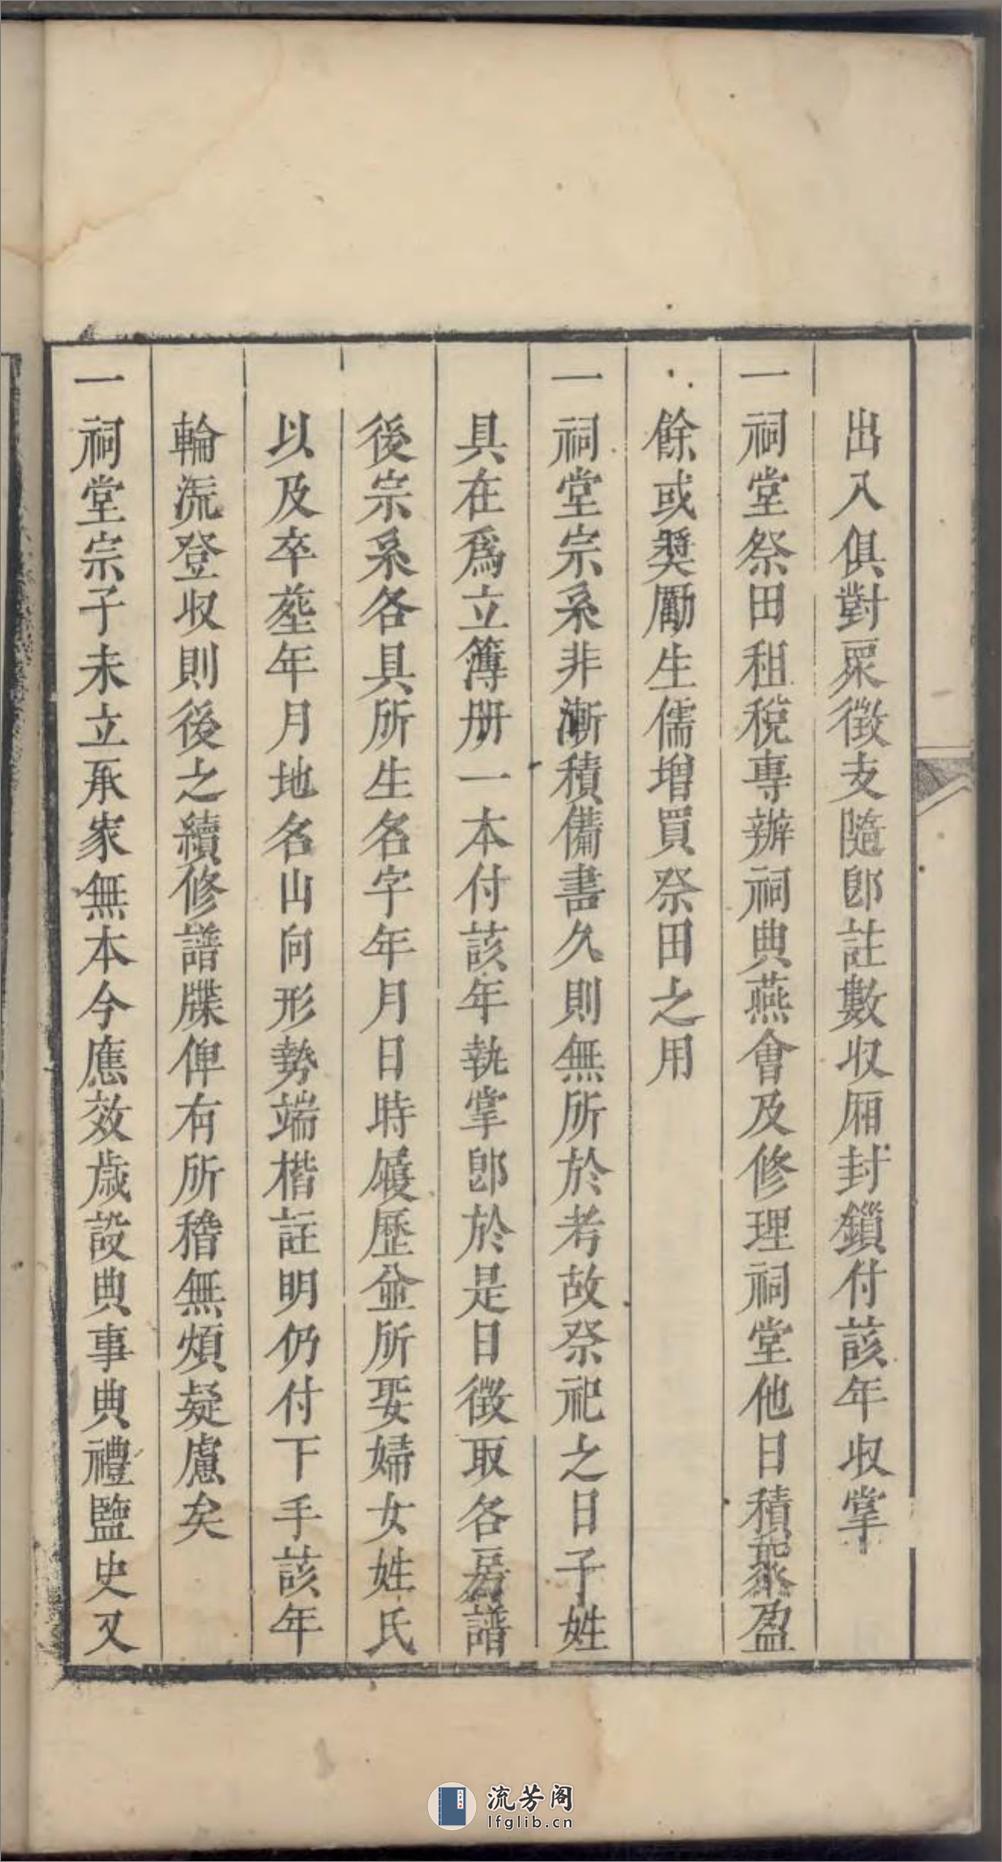 出入俱對眾徵支隨卽註數収厢封鎖付該年収掌
一祠堂祭田租稅專辦祠典燕會及修理祠堂他日積聚盈
餘或奬勵生儒增買祭田之用
一祠堂宗系非漸積備書久則無所於考故祭祀之日子姓
具在爲立簿册一本付該年執掌卽於是日徵取各房譜
後宗系各具所生名字年月日時履歷並所娶婦女姓氏
以及卒塟年月地名山向形勢端楷註明仍付下手該年
輪流登収則後之續修譜牒俾有所稽無煩疑慮矣
一祠堂宗子未立承家無本今應效歲設典事典禮監史又
流芳阁
lfglib.cn